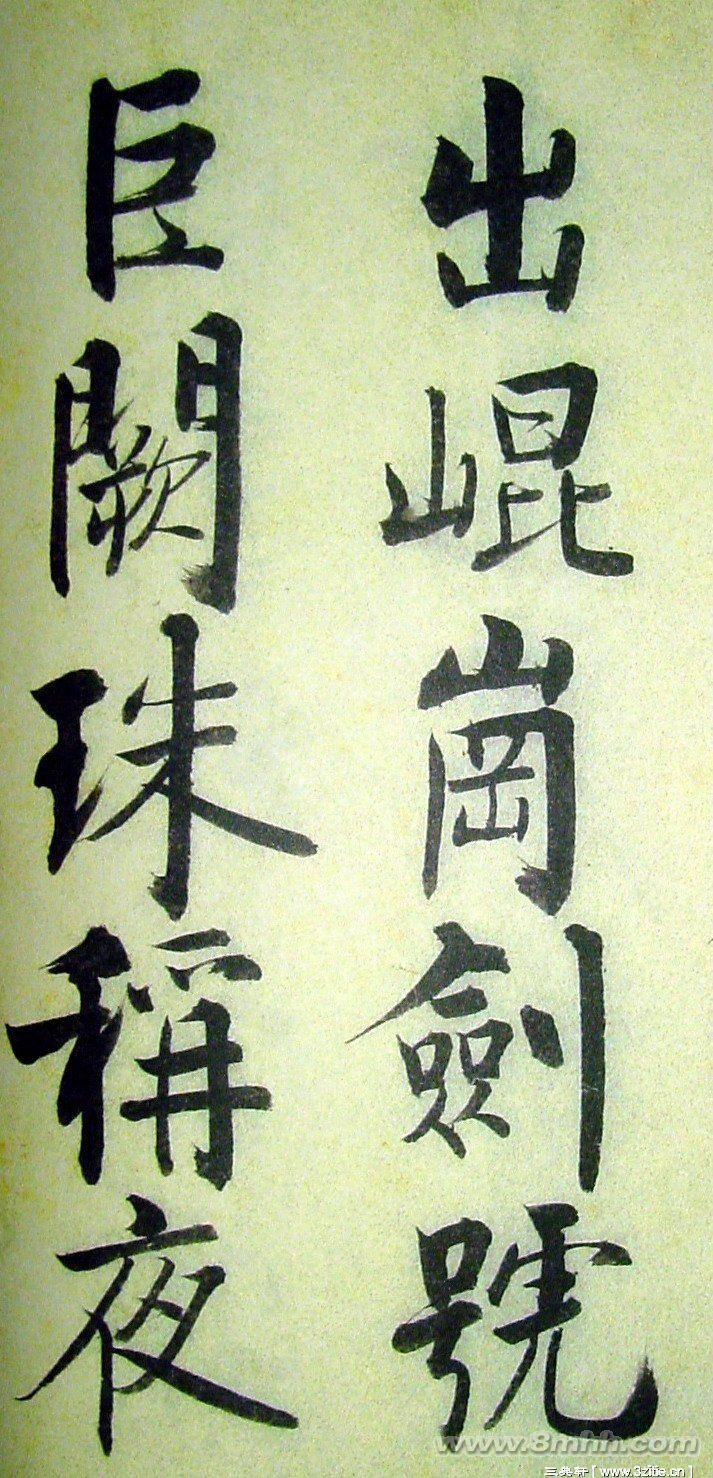 出崐崗劍號
巨闕珠稱夜
www.8mhh.com
三美轩[www.3zitie.cn]